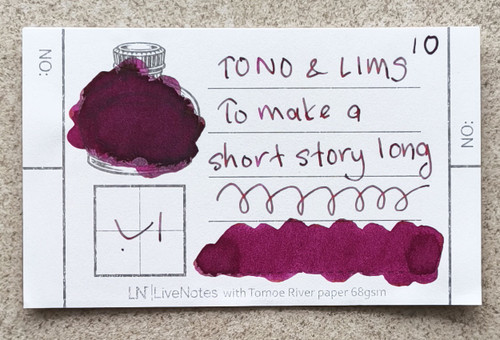 10
TONO & LIMS
To make a
short story long
NO:
NO:
LN LiveNotes with Tomoe River paper 68gsm